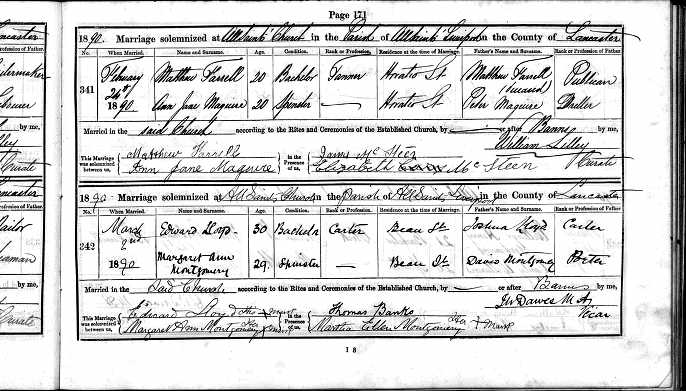 Page 171
1890. Marriage solemnized at All Saints' Church in the Parish of All Saints' Liverpool in the County of Lancaster
No. When Married. Name and Surname. Age. Condition. Rank or Profession. Residence at the time of Marriage. Father's Name and Surname. Rank or Profession of Father.
341 February 24th 1890 Matthew Farrell 20 Bachelor Tanner Horatio St Matthew Farrell (deceased) Publican
Ann Jane Maguire 20 Spinster — Horatio St Peter Maguire
Married in the said Church according to the Rites and Ceremonies of the Established Church, by — or after Banns by me,
William Lilley
Curate
This Marriage was solemnized between us, Matthew Farrell in the Presence of us, James McSteen
Ann Jane Maguire Elizabeth McSteen
1890. Marriage solemnized at All Saints Church in the Parish of All Saints Liverpool in the County of Lancaster
No. When Married. Name and Surname. Age. Condition. Rank or Profession. Residence at the time of Marriage. Father's Name and Surname. Rank or Profession of Father.
342 March 2nd 1890 Edward Lloyd 30 Bachelor Carter Beau St Joshua Lloyd Carter
Margaret Ann Montgomery 29 Spinster — Beau St Davis Montgomery Porter
Married in the Said Church according to the Rites and Ceremonies of the Established Church, by — or after Banns by me,
Dawes M.A.
Vicar
This Marriage was solemnized between us, Edward Lloyd his + mark in the Presence of us, Thomas Banks
Margaret Ann Montgomery her + mark Martha Ellen Montgomery her + mark
18